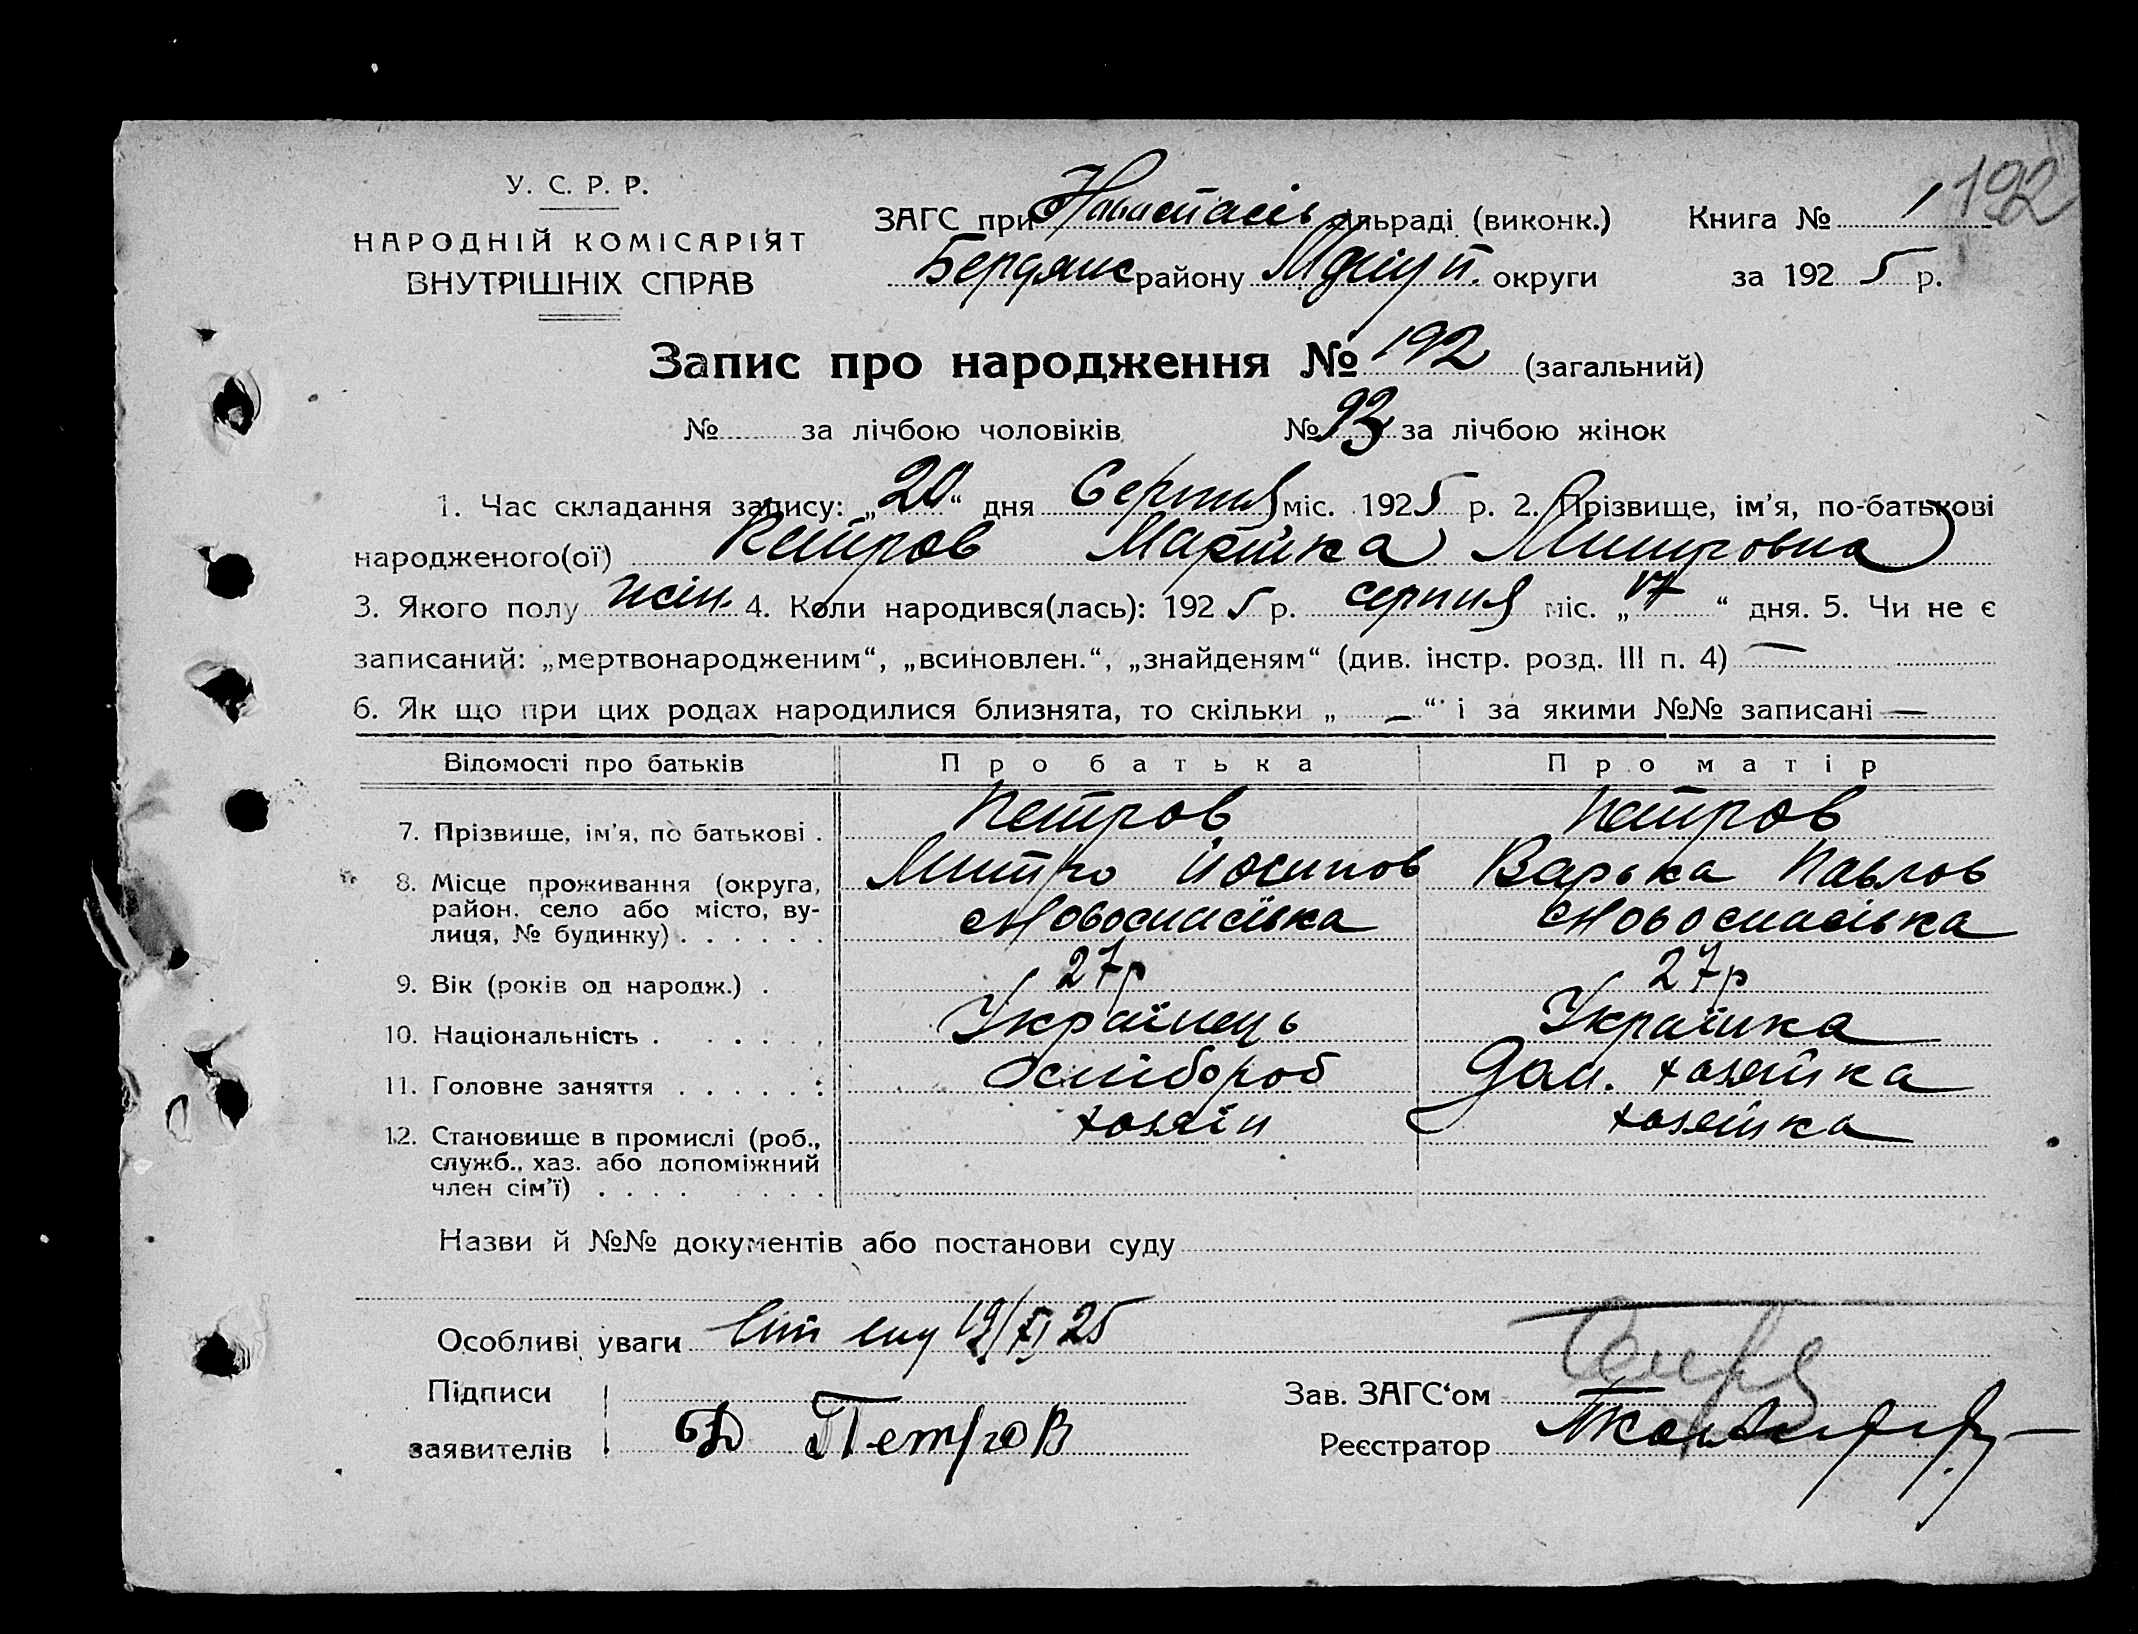 192
У. С. Р. Р.
НАРОДНІЙ КОМІСАРІЯТ
ВНУТРІШНІХ СПРАВ
ЗАГС при Новоспасів сільраді (виконк.) Книга № 1
Бердянс району Мріуп. округи за 1925 р.
Запис про народження № 192 (загальний)
№ за лічбою чоловіків № 93 за лічбою жінок
1. Час складання запису: „20“ дня Серпня міс. 1925 р. 2. Прізвище, ім'я, по-батькові
народженого(ої) Петров Марійка Митровна
3. Якого полу жін. 4. Коли народився(лась): 1925 р. серпня міс. „17“ дня. 5. Чи не є
записаний: „мертвонародженим“, „всиновлен.“, „знайденям“ (див. інстр. розд. III п. 4) —
6. Як що при цих родах народилися близнята, то скільки „ — “ і за якими №№ записані —
Відомості про батьків Про батька Про матір
7. Прізвище, ім'я, по батькові . Петров Петров
Митро Йосипов Варька Павлов
8. Місце проживання (округа,
район, село або місто, ву-
лиця, № будинку) . . . . . . с Новоспасівка с Новоспасівка
9. Вік (років од народж.) . 27р 27р
10. Національність . . . . . . Українець Українка
11. Головне заняття . . . . . : Хлібороб Дом. хозяйка
12. Становище в промислі (роб.,
служб., хаз. або допоміжний
член сім'ї) . . . . . . . . хозяїн хозяйка
Назви й №№ документів або постанови суду
Особливі уваги 25
Підписи
заявителів Петров
Зав. ЗАГС‘ом
Реєстратор